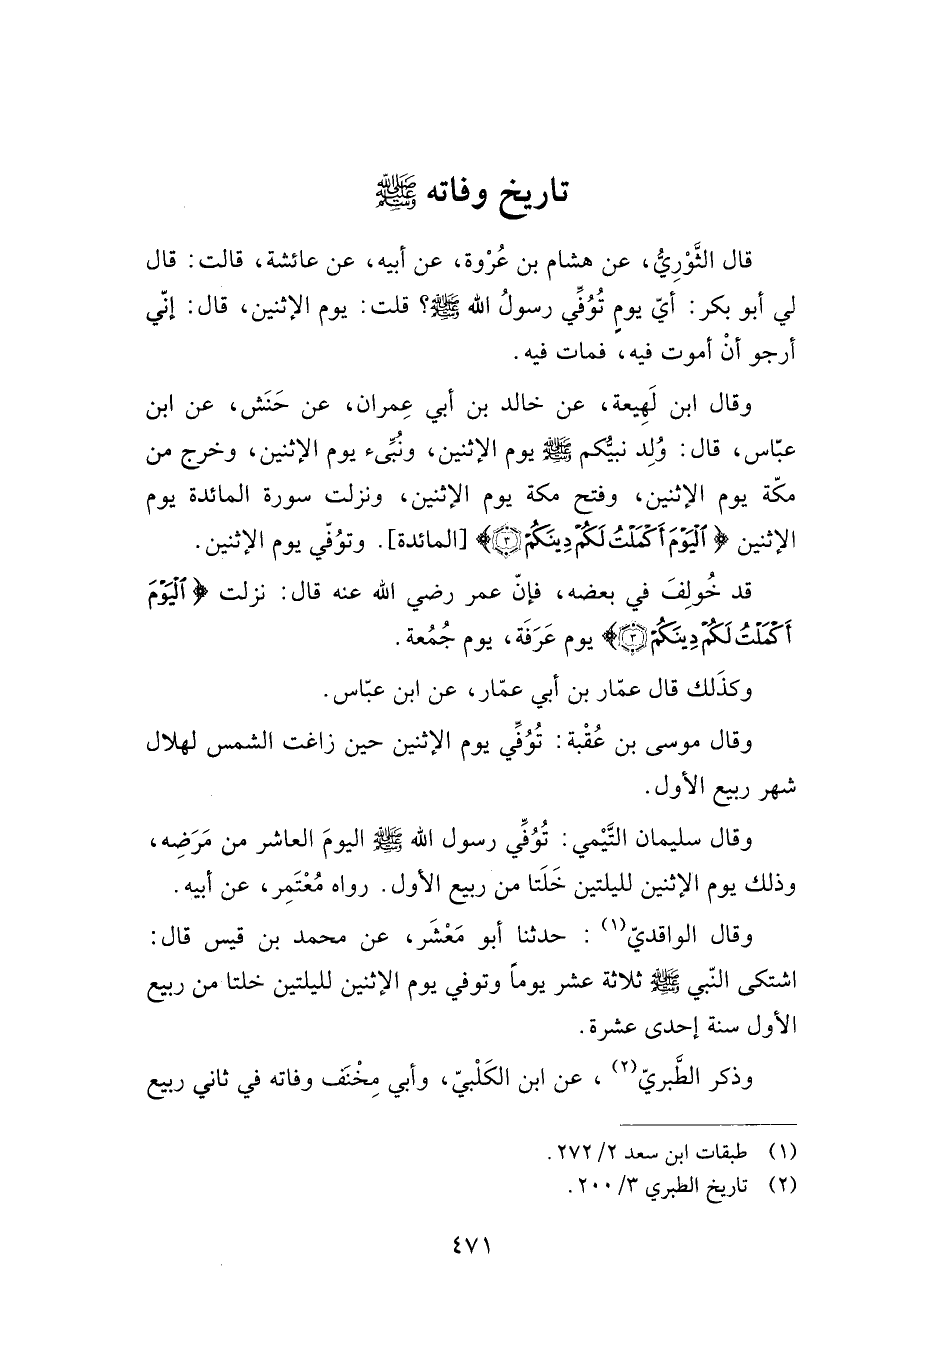 تاريخ وفاته ﷺ
قال الثَّوْرِيُّ، عن هشام بن عُرْوة، عن أبيه، عن عائشة، قالت: قال
لي أبو بكر: أيّ يومٍ تُوُفِّي رسولُ الله ﷺ؟ قلت: يوم الإثنين، قال: إنّي
أرجو أنْ أموت فيه، فمات فيه.
وقال ابن لَهِيعة، عن خالد بن أبي عِمران، عن حَنَش، عن ابن
عبّاس، قال: وُلِد نبيُّكم ﷺ يوم الإثنين، ونُبِّىء يوم الإثنين، وخرج من
مكّة يوم الإثنين، وفتح مكة يوم الإثنين، ونزلت سورة المائدة يوم
الإثنين ﴿ ٱلْيَوْمَ أَكْمَلْتُ لَكُمْ دِينَكُمْ ۝٣﴾ [المائدة]. وتوُفّي يوم الإثنين.
قد خُولِفَ في بعضه، فإنّ عمر رضي الله عنه قال: نزلت ﴿ ٱلْيَوْمَ
أَكْمَلْتُ لَكُمْ دِينَكُمْ ۝٣﴾ يوم عَرَفَة، يوم جُمُعة.
وكذَلك قال عمّار بن أبي عمّار، عن ابن عبّاس.
وقال موسى بن عُقْبة: تُوُفِّي يوم الإثنين حين زاغت الشمس لهلال
شهر ربيع الأول.
وقال سليمان التَّيْمي: تُوُفِّي رسول الله ﷺ اليومَ العاشر من مَرَضِه،
وذلك يوم الإثنين لليلتين خَلَتا من ربيع الأول. رواه مُعْتَمِر، عن أبيه.
وقال الواقديّ(١) : حدثنا أبو مَعْشَر، عن محمد بن قيس قال:
اشتكى النّبي ﷺ ثلاثة عشر يوماً وتوفي يوم الإثنين لليلتين خلتا من ربيع
الأول سنة إحدى عشرة.
وذكر الطَّبريّ(٢) ، عن ابن الكَلْبيّ، وأبي مِخْنَف وفاته في ثاني ربيع
(١) طبقات ابن سعد ٢/ ٢٧٢.
(٢) تاريخ الطبري ٣/ ٢٠٠.
٤٧١